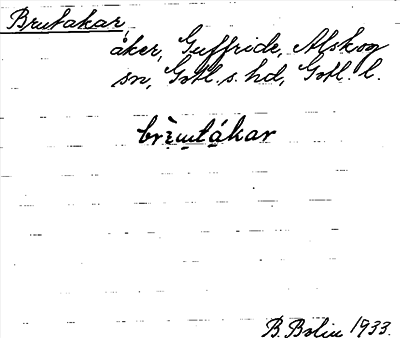 Brutakar,
åker, Guffride, Alskog
sn, Gotl. s. hd, Gotl. l.
brì̱m̱tá̱kar
B. Bolin 1933.